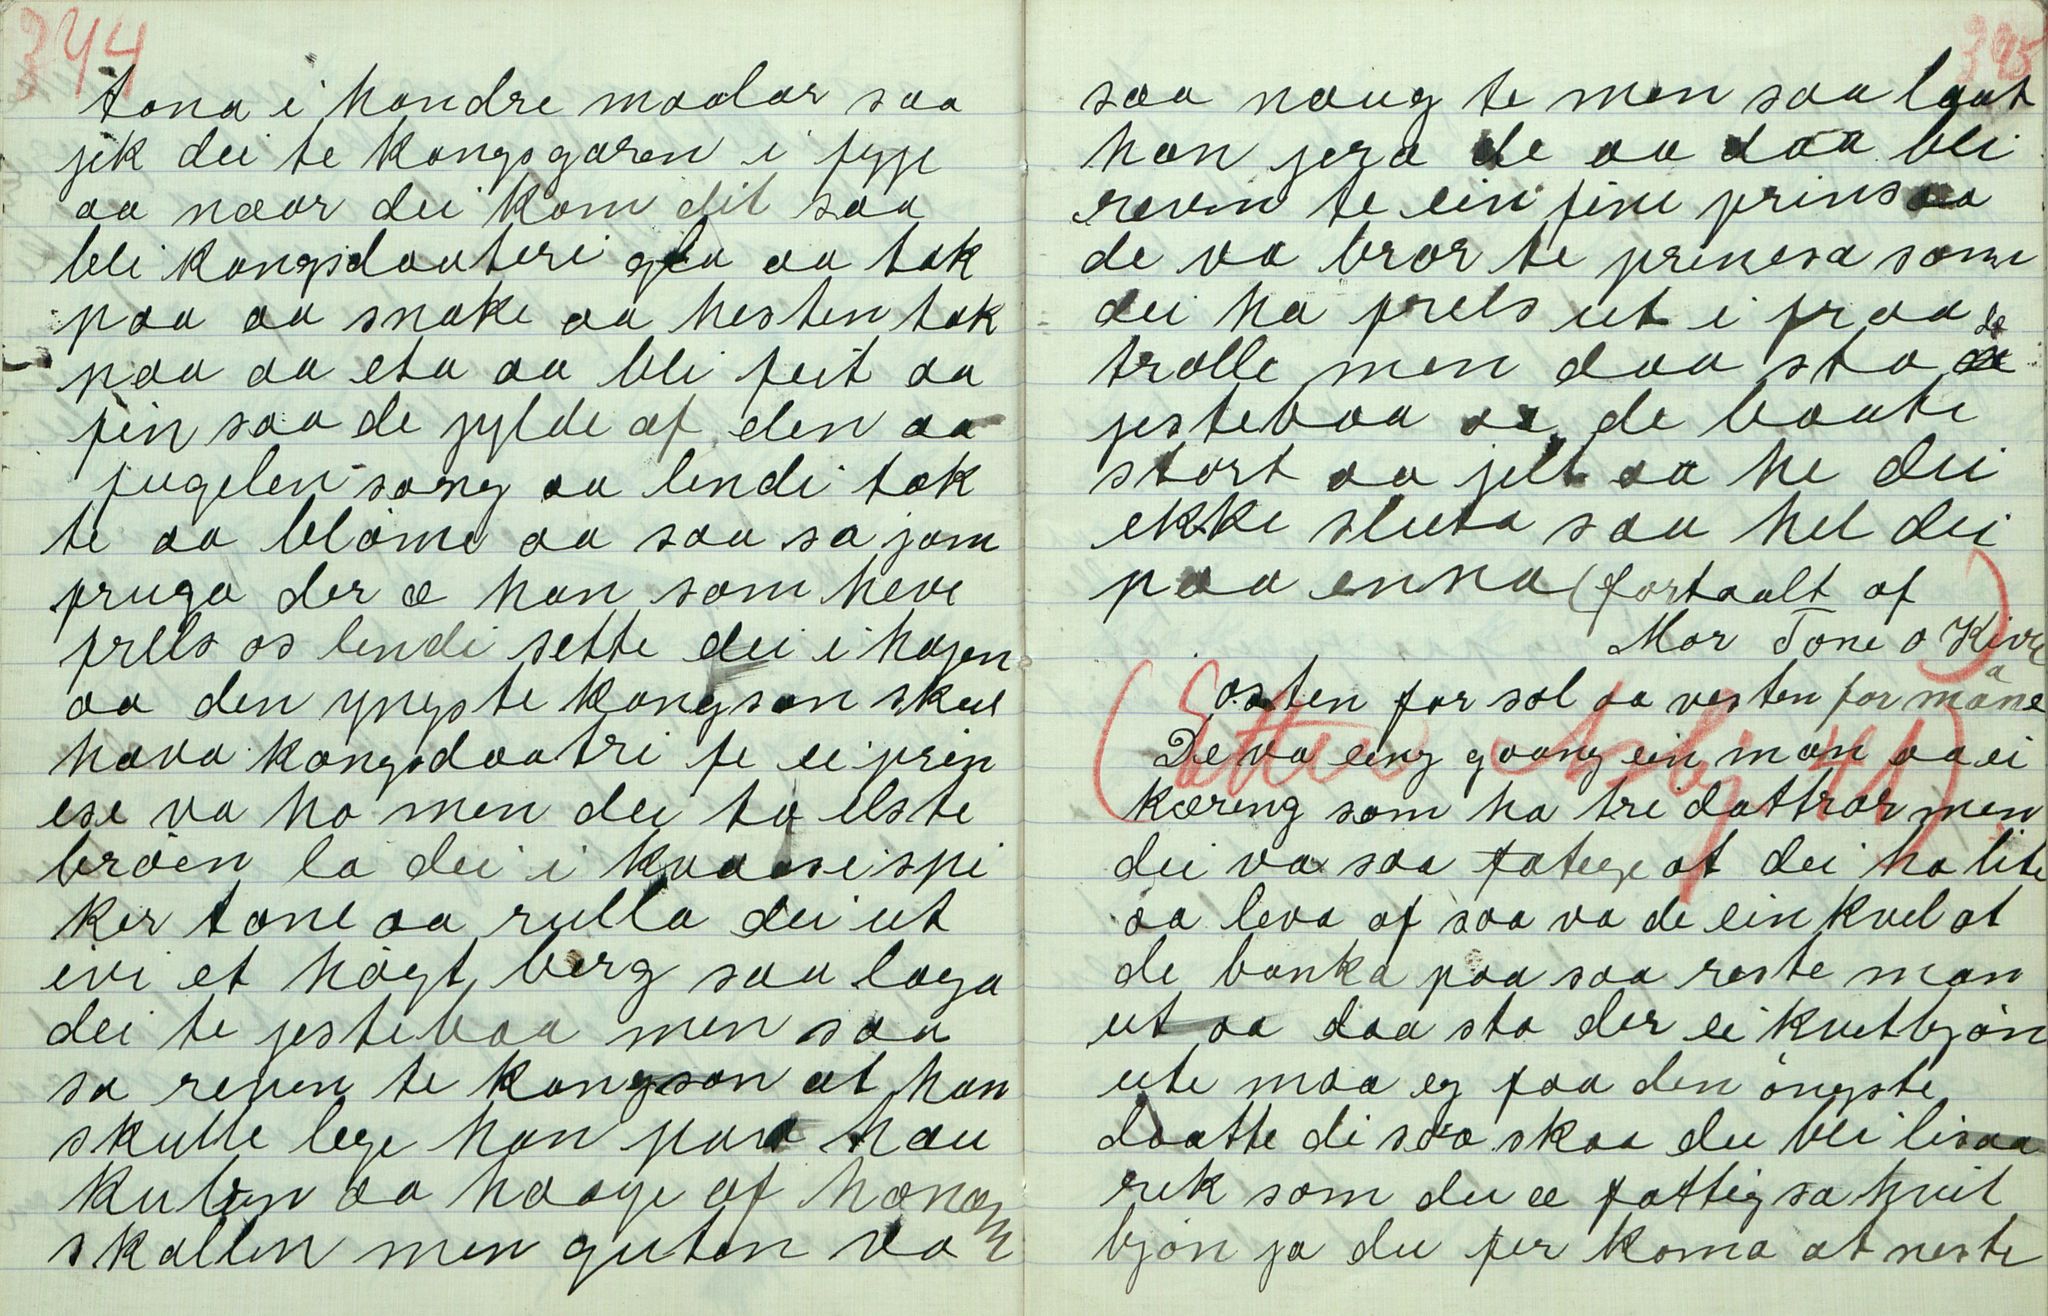 344
tona i handre maalar saa
jik dei te kongsgaren i jyje
aa naar dei kom dit saa
bli kongsdaateri gla aa tok
paa aa snake aa hesten tok
paa aa eta aa bli feit aa
fin saa de jylde af den aa
fugelen song aa lendi tok
te aa blöme aa saa sa jom
fruga der æ han som heve
frels os lendi sette dei i hagen
aa den yngste kongson skul
hava kongsdaatri fe ei prin
ese va ho men dei to elste
bröen la dei i kvaasispi
ker tone aa rulla dei ut
ivi et högt berg saa laga
dei te jestebaa men saa
sa reven te kongson at han
skulle lege han paa hau
kuben aa hogge af honom
skallen men guten va
345
saa naug te men saa laat
han jera de aa daa bli
revin te ein fine prins aa
de va bror te prinsesa som
dei ha frels ut i fraa
trolle men daa sto de
jestebaa aa de baate
stort aa jelt aa he dei
ekke sluta saa hel dei
paa enna (fortaalt af
Mor Tone o Kivle)
östen for sol aa vesten for måne
De va eing gaang ein man aa ei
kæring som ha tri dattrar men
dei va saa fatige at dei ha lite
aa leva af saa va de ein kvel at
de banka paa saa reste man
ut aa daa sto der ei kvitbjön
ute maa eg faa den öngste
daatte di saa skaa du bli lisaa
rik som du æ fattig sa hvit
bjön ja du fer koma at neste